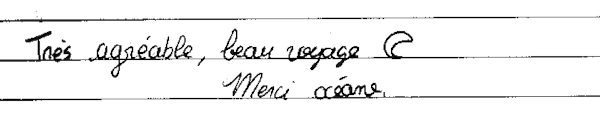 Très agréable, beau voyage
Merci océane.